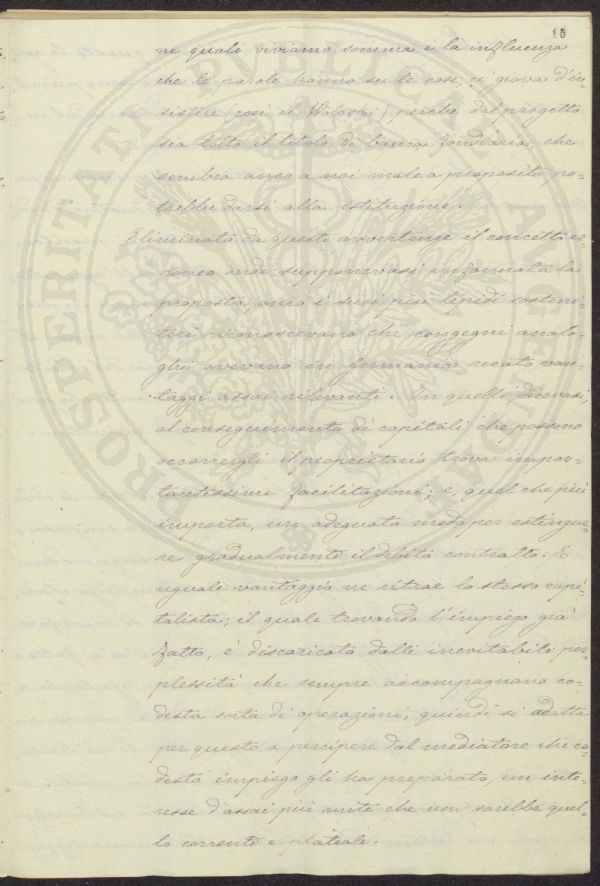 15
ne quali viviamo somma è la influenza
che le parole hanno su le cose, ci giova d'in=
sistere (così il Woloski) perchè dal progetto
sia tolto il titolo di banca fondiaria, che
sembra anco a noi male a proposito po=
trebbe darsi alla istituzione.
Eliminato da queste avvertenze il concetto er=
roneo onde supponevasi informata la
proposta, anco i suoi più tepidi sosteni=
tori riconoscevano che congegni analo=
ghi avevano in Germania recato van=
taggi assai rilevanti. In quelli, dicevasi,
al conseguimento de' capitali che possono
occorrergli il proprietario trova impor=
tantissime facilitazioni; e, quel che più
importa, un adeguato modo per estingue=
re gradualmente il debito contratto. E
uguale vantaggio ne ritrae lo stesso capi=
talista; il quale trovando l'impiego già
fatto, è discaricato dalle inevitabili per=
plessità che sempre accompagnano co=
desta sorta di operazioni; quindi si adatta
per questo a percipere dal mediatore che co=
desto impiego gli ha preparato, un inte=
resse d'assai più mite che non sarebbe quel=
lo corrente e plateale.
PROSPERITATI PUBLICAE AUGENDAE